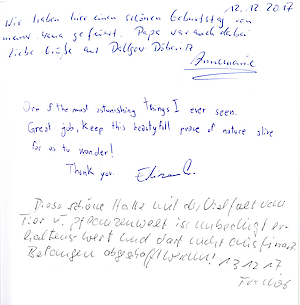 12.12.2017
Wir haben hier einen schönen Geburtstag von
gefeiert. Papa war auch dabei
Liebe Grüße aus
Annemarie
One of the most astonishing things I ever seen.
Great job, keep this beautyfull peace of nature alive
for us to wonder!
Thank you.
Diese schöne Halle mit der Vielfalt von
Tier u. Pflanzenwelt ist unbedingt er-
haltenswert und darf nicht aus finanz.
Belangen abgeschafft werden!
13.12.17